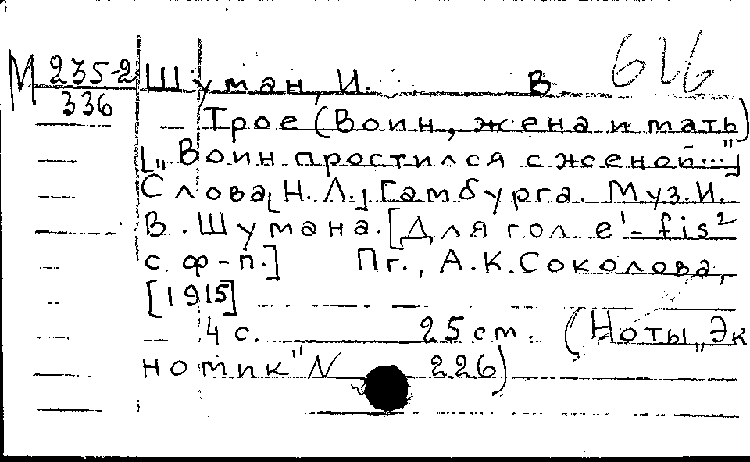 М 235-2 Шуман, И. В. 626
336
Трое (Воин, жена и мать)
[„Воин простился с женой..."]
Слова [Н. Л.] Гамбурга. Муз. И.
В. Шумана. [Для гол. e¹-fis²
с ф-п.] Пг., А.К. Соколова,
[1915]
4 с. 25 см. (Ноты „Эк
номик" N 226)